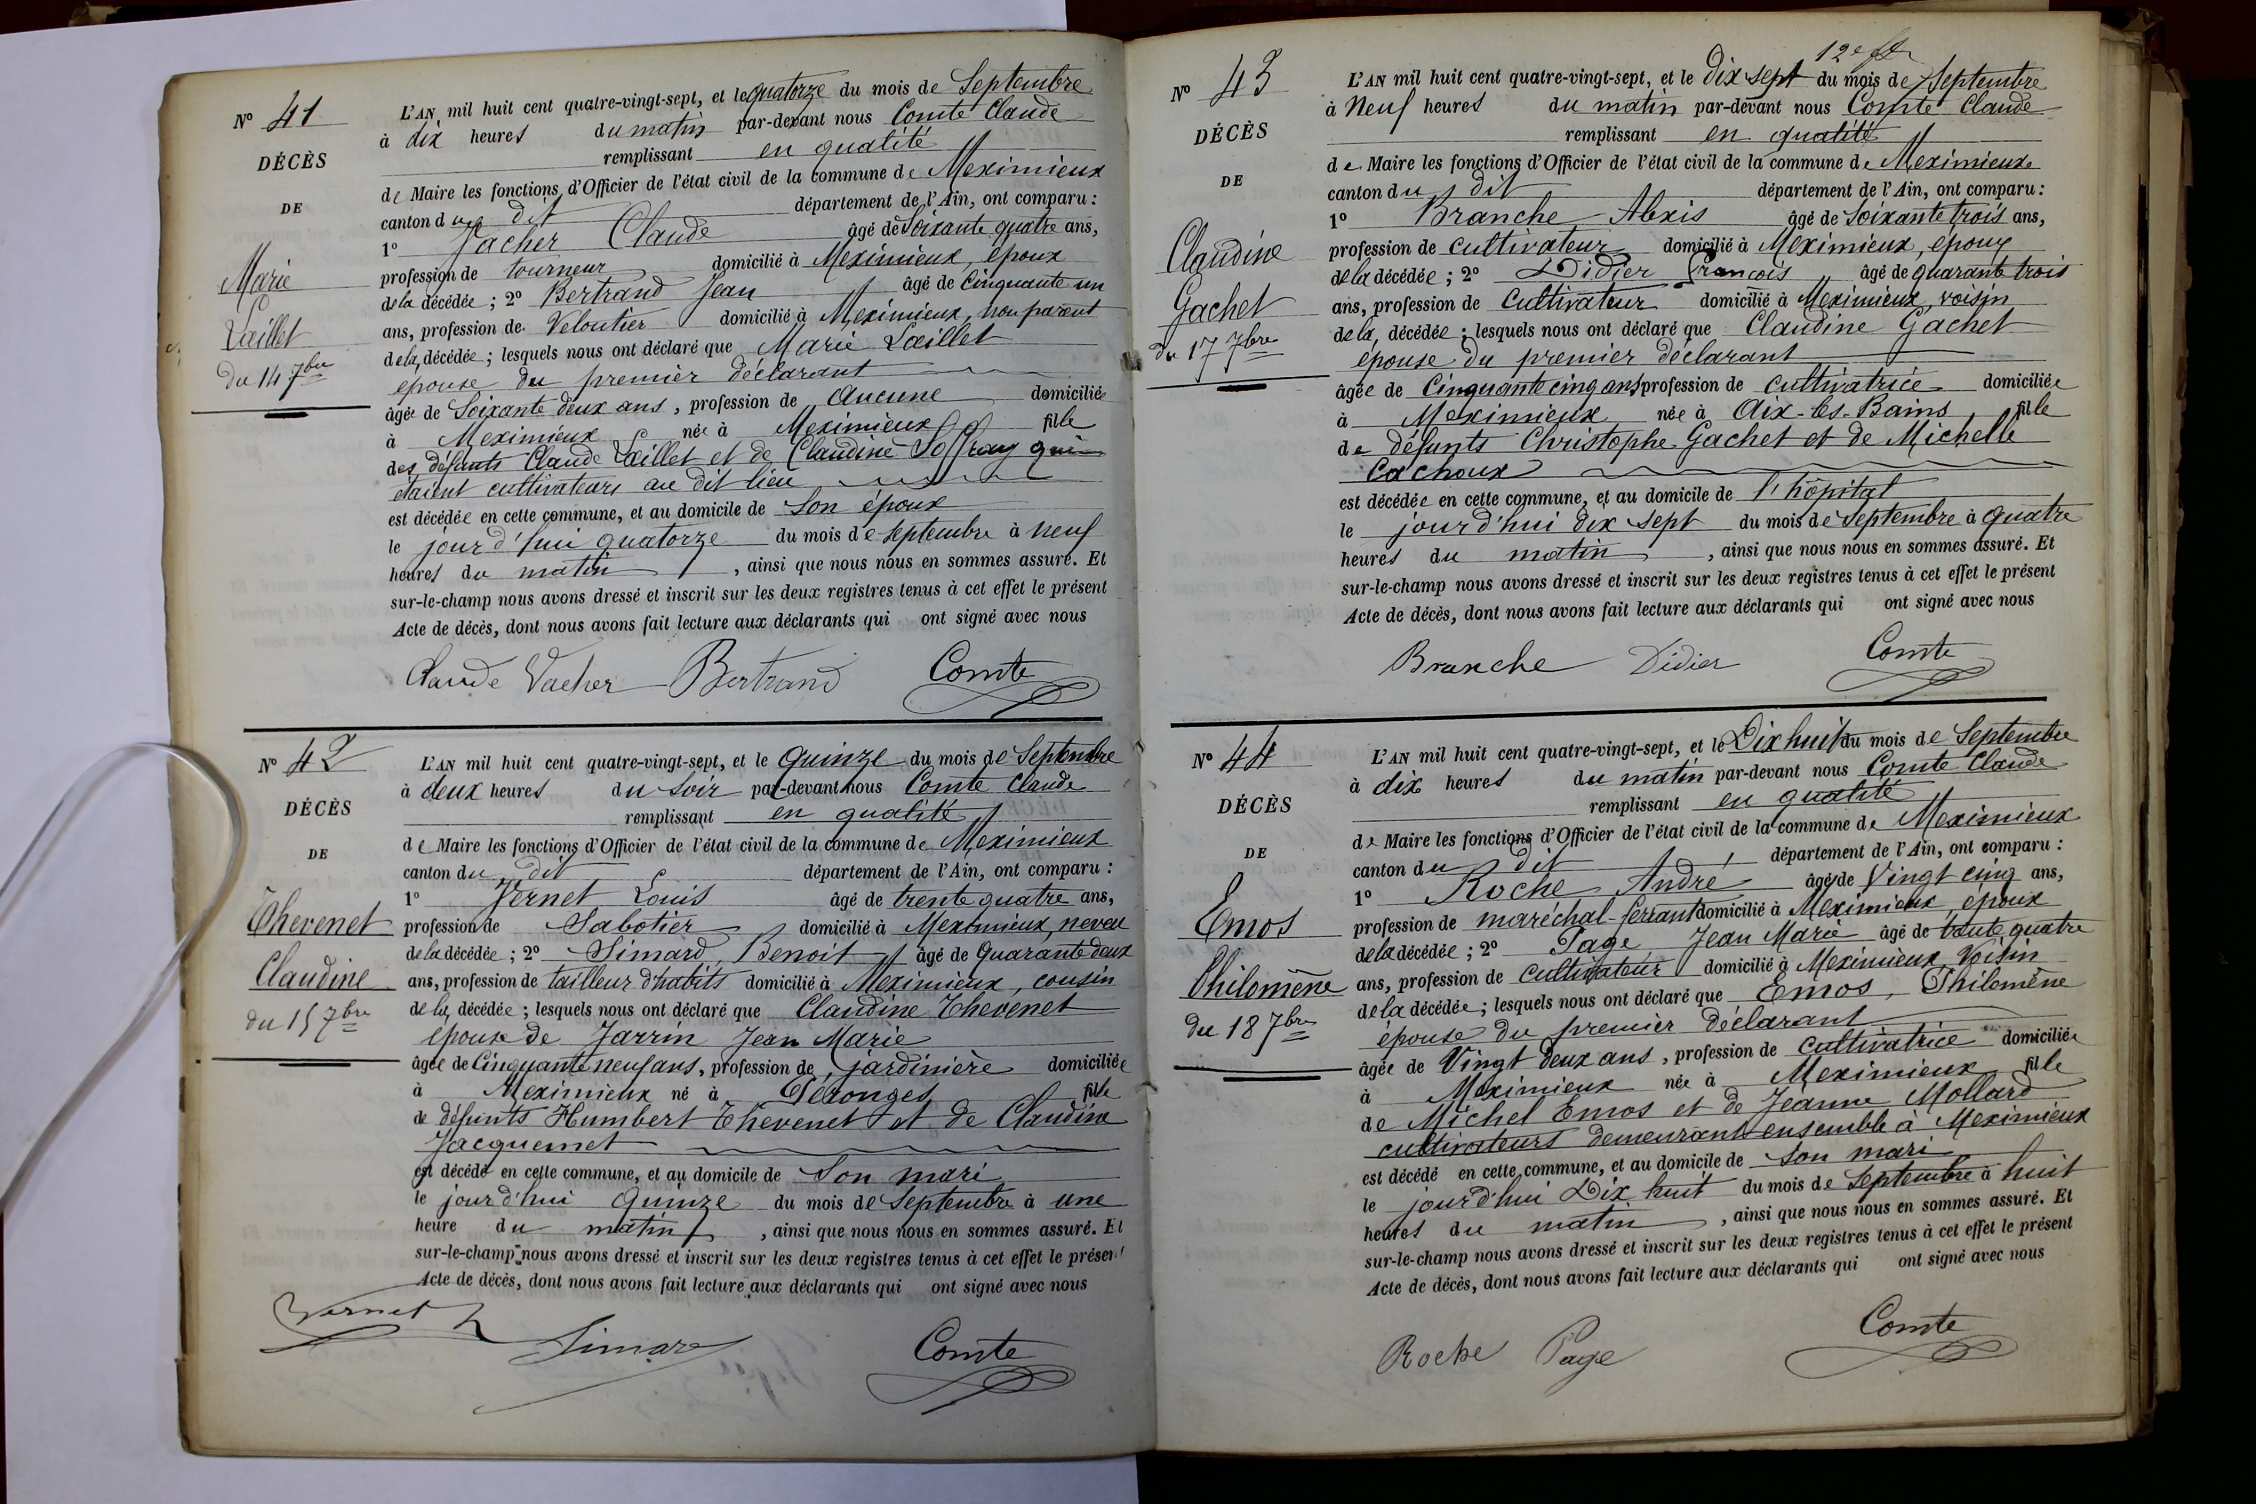 N° 41
DÉCÈS
DE
Marie
Laillet
du 14 7bre
L'AN mil huit cent quatre-vingt-sept, et le quatorze du mois de Septembre
à dix heures du matin par-devant nous Comte Claude
remplissant en qualité
de Maire les fonctions d'Officier de l'état civil de la commune de Meximieux
canton du dit département de l'Ain, ont comparu :
1° Vacher Claude âgé de Soixante quatre ans,
profession de tourneur domicilié à Meximieux, époux
de la décédée ; 2° Bertrand Jean âgé de Cinquante un
ans, profession de Veloutier domicilié à Meximieux, non parent
de la décédée ; lesquels nous ont déclaré que Marie Laillet
épouse du premier déclarant
âgée de Soixante deux ans, profession de aucune domiciliée
à Meximieux née à Meximieux fille
des défunts Claude Laillet et de Claudine Joffray qui
étaient cultivateurs au dit lieu
est décédée en cette commune, et au domicile de son époux
le jourd'hui quatorze du mois de septembre à neuf
heures du matin, ainsi que nous nous en sommes assuré. Et
sur-le-champ nous avons dressé et inscrit sur les deux registres tenus à cet effet le présent
Acte de décès, dont nous avons fait lecture aux déclarants qui ont signé avec nous
Claude Vacher Bertrand Comte
N° 42
DÉCÈS
DE
Thevenet
Claudine
du 15 7bre
L'AN mil huit cent quatre-vingt-sept, et le quinze du mois de Septembre
à deux heures du soir par-devant nous Comte Claude
remplissant en qualité
de Maire les fonctions d'Officier de l'état civil de la commune de Meximieux
canton du dit département de l'Ain, ont comparu :
1° Vernet Louis âgé de trente quatre ans,
profession de Sabotier domicilié à Meximieux, neveu
de la décédée ; 2° Simard, Benoit âgé de Quarante deux
ans, profession de tailleur d'habits domicilié à Meximieux, cousin
de la décédée ; lesquels nous ont déclaré que Claudine Thevenet
épouse de Jarrin Jean Marie
âgée de Cinquante neuf ans, profession de jardinière domiciliée
à Meximieux né à Pérouges fille
de défunts Humbert Thevenet et de Claudine
Jacquemet
est décédé en cette commune, et au domicile de Son mari
le jourd'hui quinze du mois de Septembre à une
heure du matin, ainsi que nous nous en sommes assuré. Et
sur-le-champ nous avons dressé et inscrit sur les deux registres tenus à cet effet le présent
Acte de décès, dont nous avons fait lecture aux déclarants qui ont signé avec nous
Vernet L
Simard Comte
12e
N° 43
DÉCÈS
DE
Claudine
Gachet
du 17 7bre
L'AN mil huit cent quatre-vingt-sept, et le Dix sept du mois de Septembre
à Neuf heures du matin par-devant nous Comte Claude
remplissant en qualité
de Maire les fonctions d'Officier de l'état civil de la commune de Meximieux
canton du dit département de l'Ain, ont comparu :
1° Branche Alexis âgé de Soixante trois ans,
profession de cultivateur domicilié à Meximieux, époux
de la décédée ; 2° Didier François âgé de quarante trois
ans, profession de Cultivateur domicilié à Meximieux, voisin
de la décédée ; lesquels nous ont déclaré que Claudine Gachet
épouse du premier déclarant
âgée de Cinquante cinq ans profession de cultivatrice domiciliée
à Meximieux née à Aix-les-Bains fille
de défunts Christophe Gachet et de Michelle
Cachoux
est décédée en cette commune, et au domicile de l'hôpital
le jourd'hui dix sept du mois de Septembre à quatre
heures du matin, ainsi que nous nous en sommes assuré. Et
sur-le-champ nous avons dressé et inscrit sur les deux registres tenus à cet effet le présent
Acte de décès, dont nous avons fait lecture aux déclarants qui ont signé avec nous
Branche Didier Comte
N° 44
DÉCÈS
DE
Emos
Philomène
du 18 7bre
L'AN mil huit cent quatre-vingt-sept, et le Dix huit du mois de Septembre
à dix heures du matin par-devant nous Comte Claude
remplissant en qualité
de Maire les fonctions d'Officier de l'état civil de la commune de Meximieux
canton du dit département de l'Ain, ont comparu :
1° Roche André âgé de Vingt cinq ans,
profession de maréchal-ferrant domicilié à Meximieux, époux
de la décédée ; 2° Page Jean Marie âgé de trente quatre
ans, profession de cultivateur domicilié à Meximieux, Voisin
de la décédée ; lesquels nous ont déclaré que Emos, Philomène
épouse du premier déclarant
âgée de Vingt deux ans, profession de cultivatrice domiciliée
à Meximieux née à Meximieux fille
de Michel Emos et de Jeanne Mollard
cultivateurs demeurant ensemble à Meximieux
est décédé en cette commune, et au domicile de Son mari
le jourd'hui Dix huit du mois de Septembre à huit
heures du matin, ainsi que nous nous en sommes assuré. Et
sur-le-champ nous avons dressé et inscrit sur les deux registres tenus à cet effet le présent
Acte de décès, dont nous avons fait lecture aux déclarants qui ont signé avec nous
Roche Page Comte